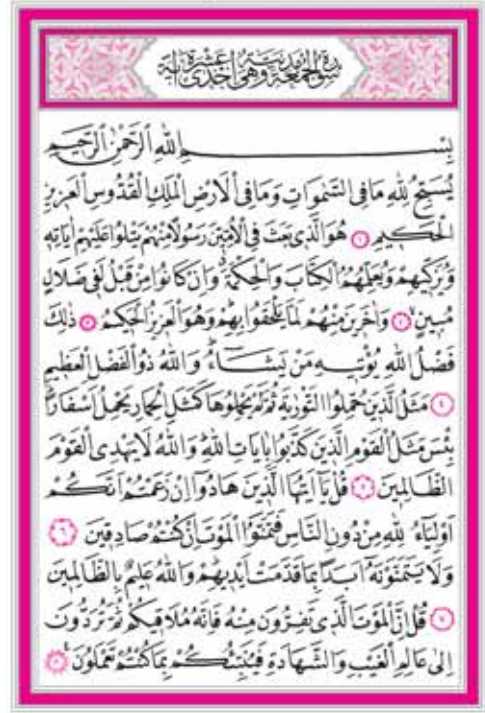 سورة الجمعة مدنية وهي احدى عشرة اية
بِسْمِ اللهِ الرَّحْمٰنِ الرَّحٖيمِ
يُسَبِّحُ لِلّٰهِ مَا فِي السَّمٰوَاتِ وَمَا فِي الْاَرْضِ الْمَلِكِ الْقُدُّوسِ الْعَزٖيزِ
الْحَكٖيمِ ﴿١﴾ هُوَ الَّذٖي بَعَثَ فِي الْاُمِّيّٖنَ رَسُولًا مِنْهُمْ يَتْلُوا عَلَيْهِمْ اٰيَاتِهٖ
وَيُزَكّٖيهِمْ وَيُعَلِّمُهُمُ الْكِتَابَ وَالْحِكْمَةَ وَاِنْ كَانُوا مِنْ قَبْلُ لَفٖي ضَلَالٍ
مُبٖينٍ ﴿٢﴾ وَاٰخَرٖينَ مِنْهُمْ لَمَّا يَلْحَقُوا بِهِمْ وَهُوَ الْعَزٖيزُ الْحَكٖيمُ ﴿٣﴾ ذٰلِكَ
فَضْلُ اللهِ يُؤْتٖيهِ مَنْ يَشَاءُ وَاللهُ ذُو الْفَضْلِ الْعَظٖيمِ
﴿٤﴾ مَثَلُ الَّذٖينَ حُمِّلُوا التَّوْرٰيةَ ثُمَّ لَمْ يَحْمِلُوهَا كَمَثَلِ الْحِمَارِ يَحْمِلُ اَسْفَارًا
بِئْسَ مَثَلُ الْقَوْمِ الَّذٖينَ كَذَّبُوا بِاٰيَاتِ اللهِ وَاللهُ لَا يَهْدِي الْقَوْمَ
الظَّالِمٖينَ ﴿٥﴾ قُلْ يَا اَيُّهَا الَّذٖينَ هَادُوا اِنْ زَعَمْتُمْ اَنَّكُمْ
اَوْلِيَاءُ لِلّٰهِ مِنْ دُونِ النَّاسِ فَتَمَنَّوُا الْمَوْتَ اِنْ كُنْتُمْ صَادِقٖينَ ﴿٦﴾
وَلَا يَتَمَنَّوْنَهُ اَبَدًا بِمَا قَدَّمَتْ اَيْدٖيهِمْ وَاللهُ عَلٖيمٌ بِالظَّالِمٖينَ
﴿٧﴾ قُلْ اِنَّ الْمَوْتَ الَّذٖي تَفِرُّونَ مِنْهُ فَاِنَّهُ مُلَاقٖيكُمْ ثُمَّ تُرَدُّونَ
اِلٰى عَالِمِ الْغَيْبِ وَالشَّهَادَةِ فَيُنَبِّئُكُمْ بِمَا كُنْتُمْ تَعْمَلُونَ ﴿٨﴾